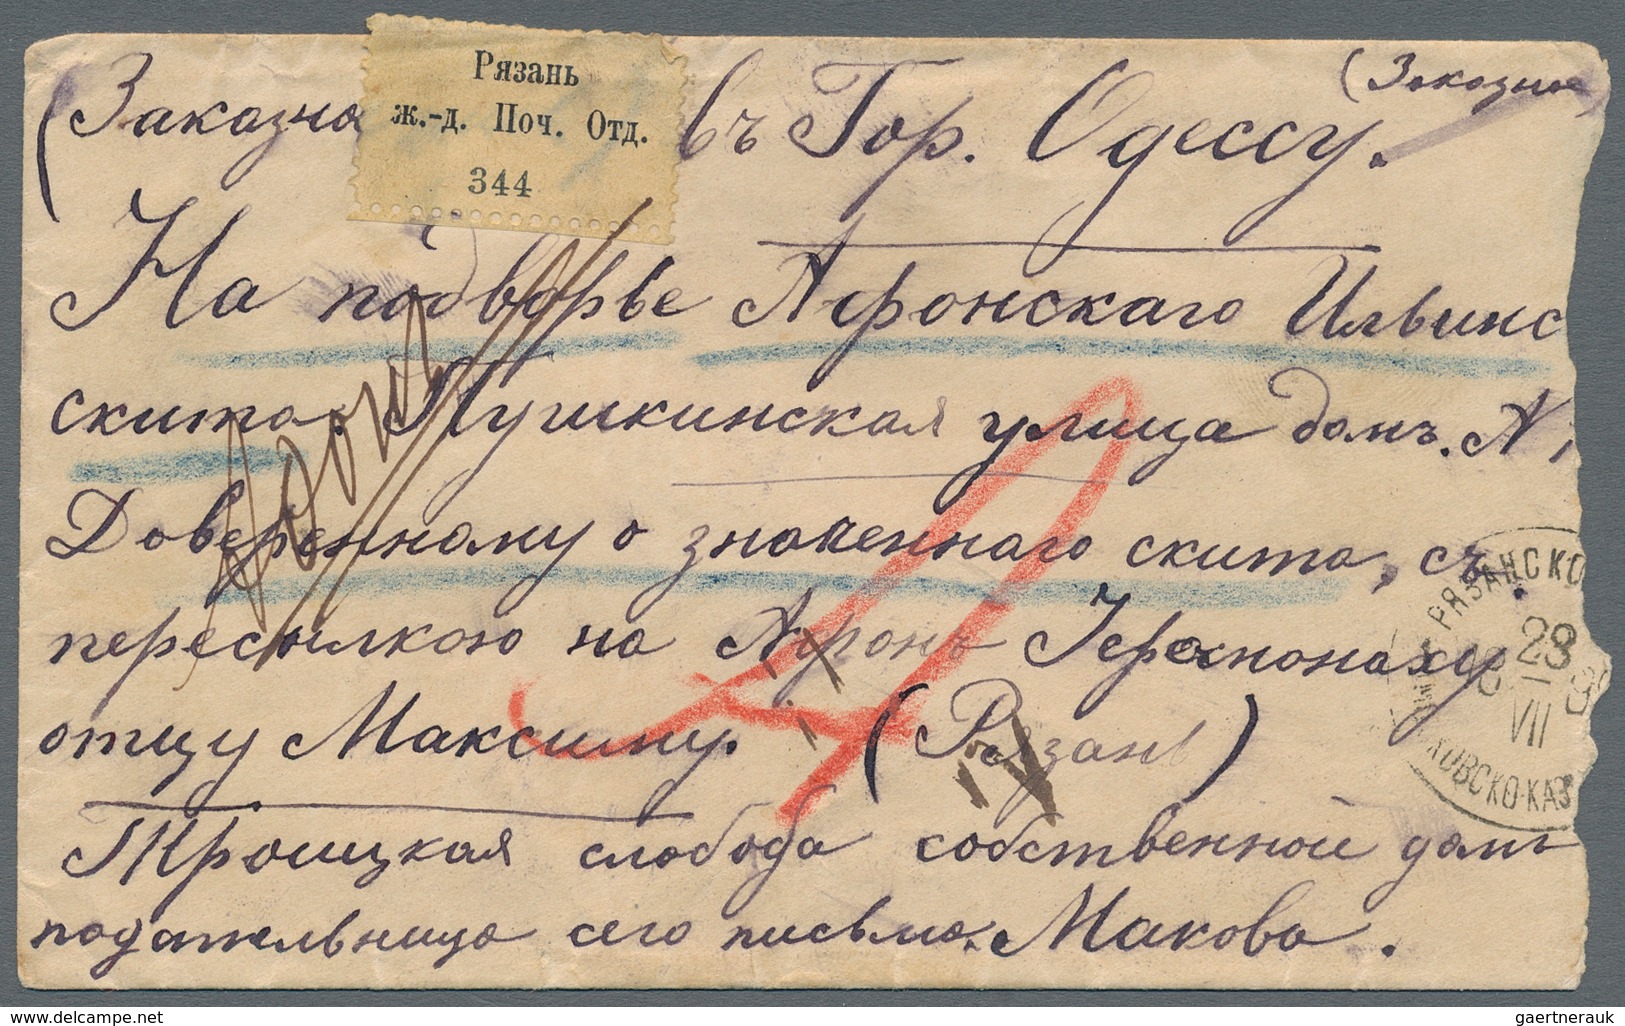 Рязань
ж.-д. Поч. Отд.
344
(Заказно
въ Гор. Одессу.
(Заказное)
На подворье Афонскаго Ильинс
скита. Пушкинская улица домъ. N
Доверенному о значеннаго скита, съ
пересылкою на Афонъ Іеромонаху
отцу Максиму. (Рязань)
Троицкая слобода собственной домъ
подательница сего письма. Макова.
РЯЗАНСКО
28
VII
КОВСКО-КАЗ
www.delcampe.net
gaertnerauk